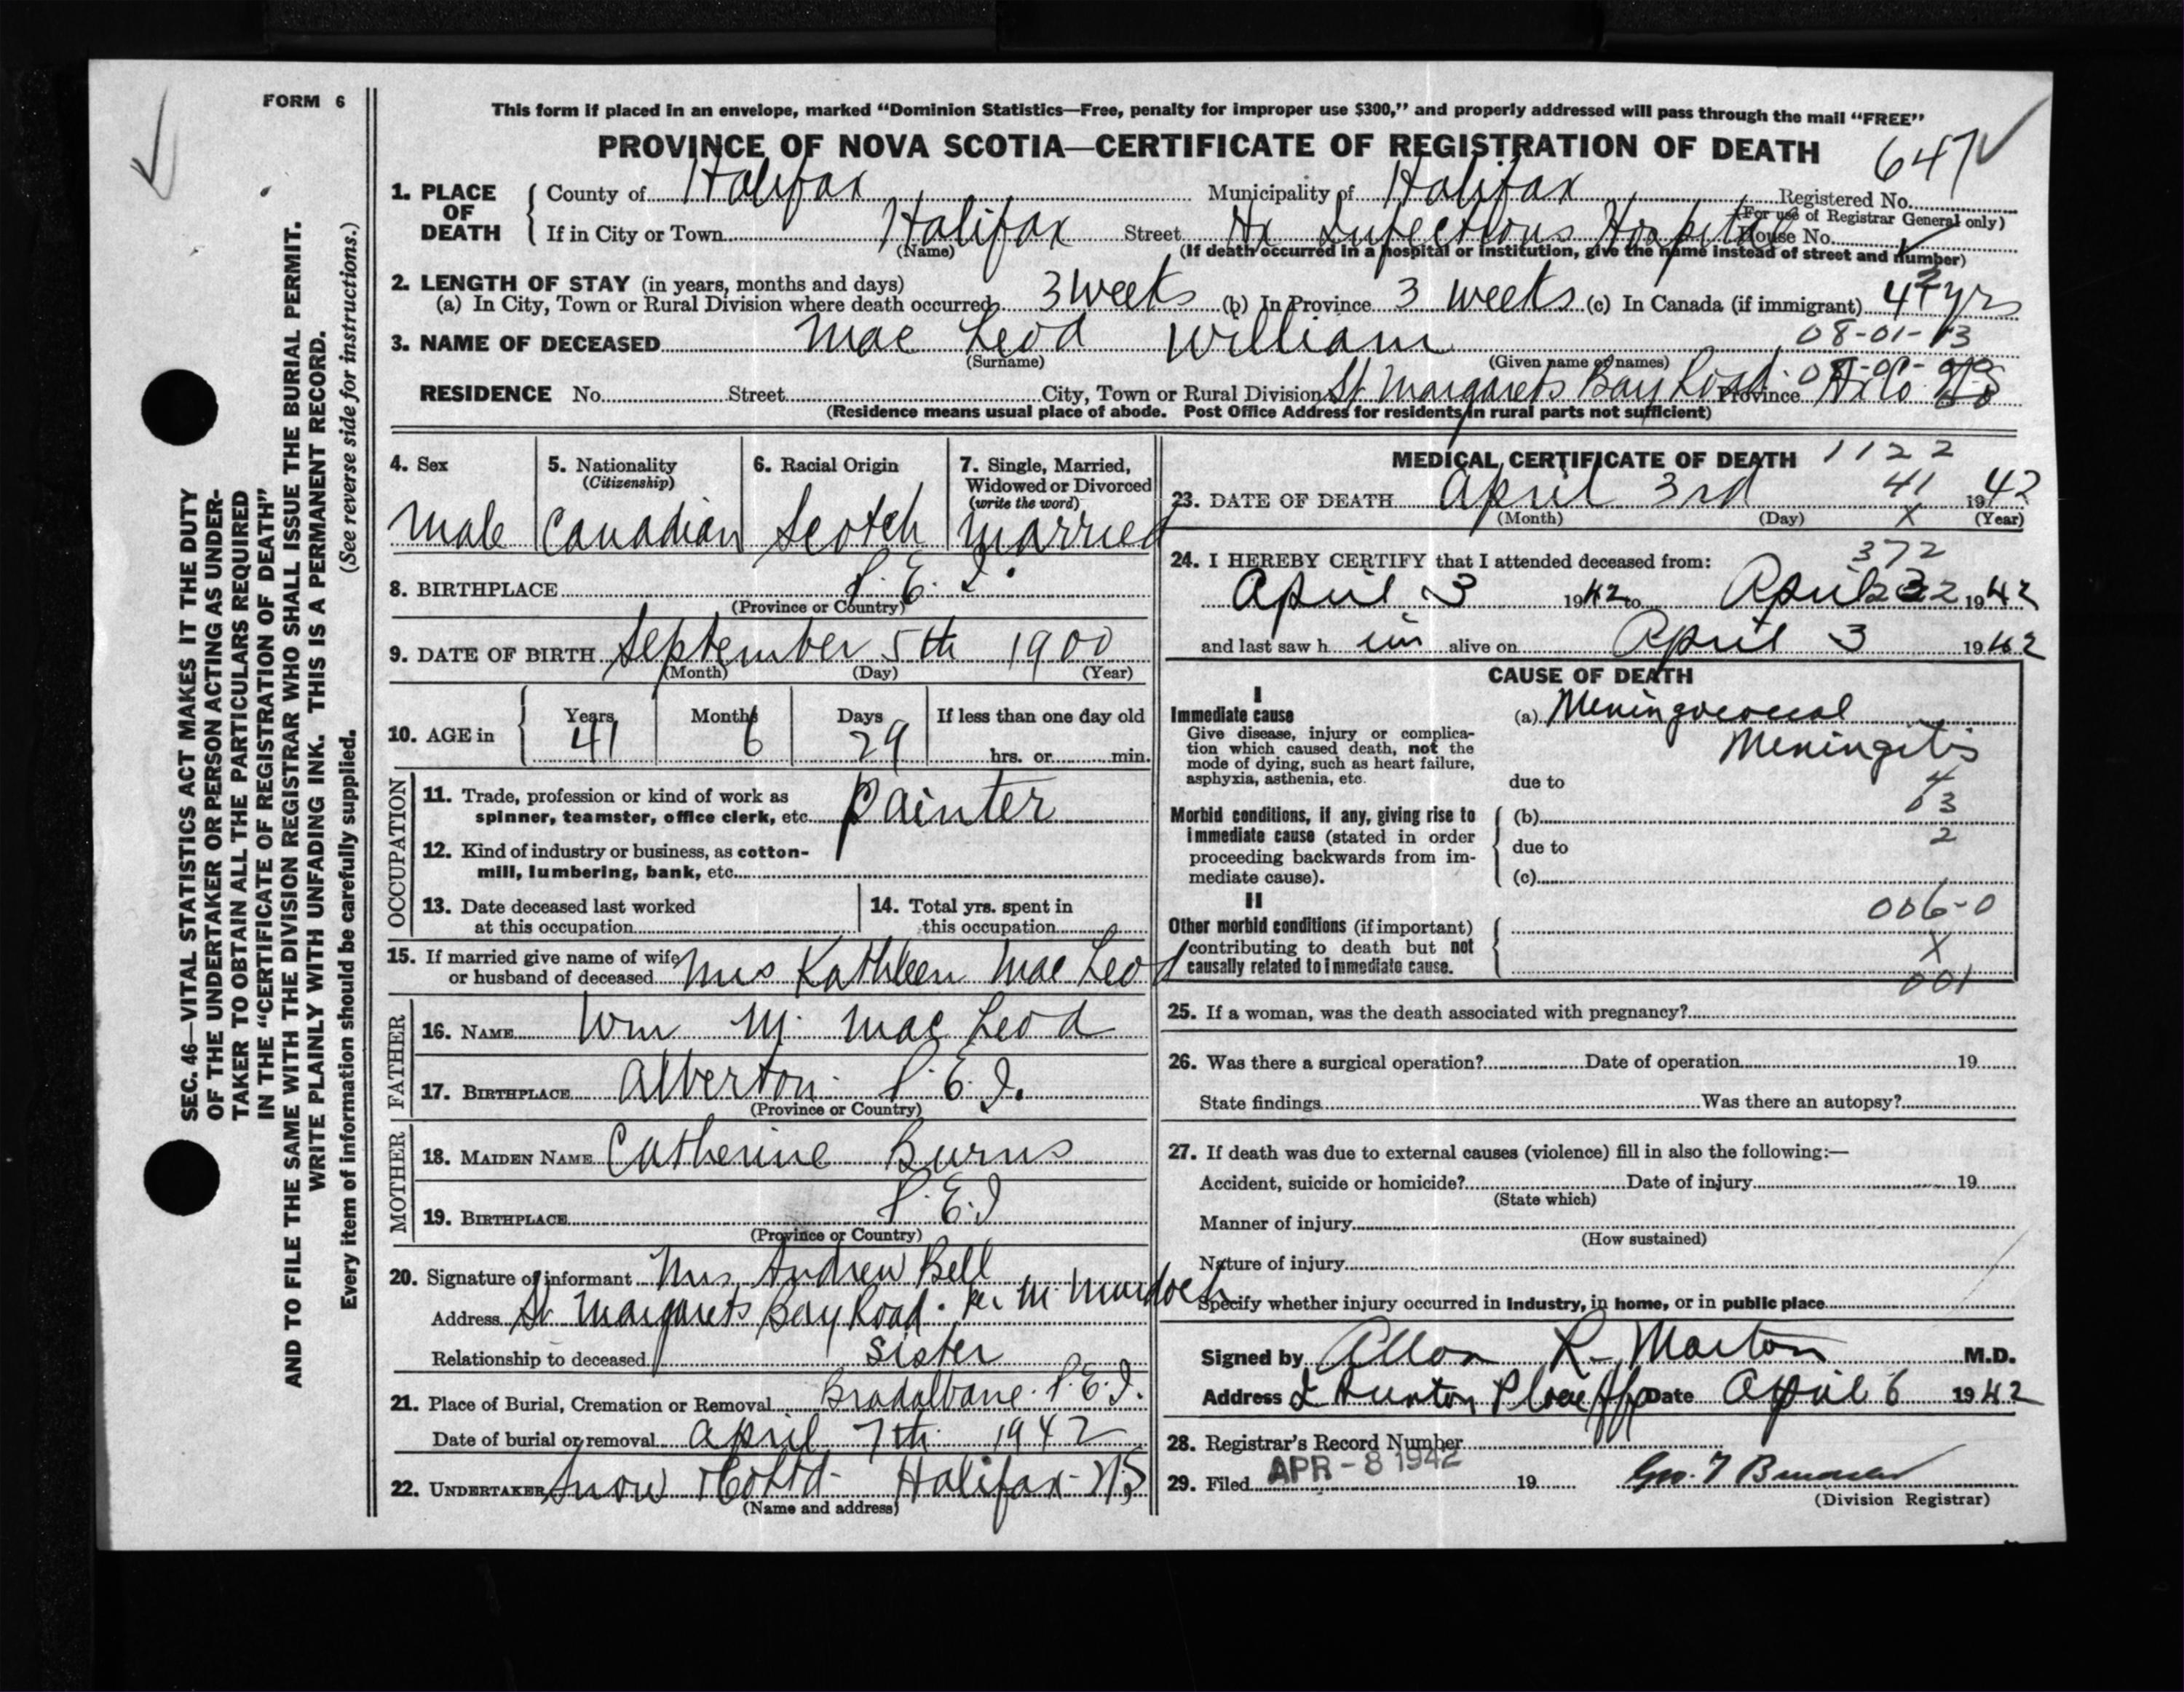 FORM 6
This form if placed in an envelope, marked "Dominion Statistics—Free, penalty for improper use $300," and properly addressed will pass through the mail "FREE"
PROVINCE OF NOVA SCOTIA—CERTIFICATE OF REGISTRATION OF DEATH
647
1. PLACE OF DEATH
County of Halifax Municipality of Halifax Registered No.
(For use of Registrar General only)
If in City or Town Halifax Street Hx Infectious Hospital House No.
(Name) (If death occurred in a hospital or institution, give the name instead of street and number)
2. LENGTH OF STAY (in years, months and days)
(a) In City, Town or Rural Division where death occurred 3 weeks (b) In Province 3 weeks (c) In Canada (if immigrant) yrs
3. NAME OF DECEASED Mac Leod William 08-01-13
(Surname) (Given name or names)
RESIDENCE No. Street City, Town or Rural Division St Margarets Bay Road Province Hx Co. N.S
(Residence means usual place of abode. Post Office Address for residents in rural parts not sufficient)
4. Sex
Male
5. Nationality
(Citizenship)
Canadian
6. Racial Origin
Scotch
7. Single, Married,
Widowed or Divorced
(write the word)
Married
8. BIRTHPLACE P. E. I.
(Province or Country)
9. DATE OF BIRTH September 5th 1900
(Month) (Day) (Year)
10. AGE in Years 41 Months 6 Days 29 If less than one day old
hrs. or min.
OCCUPATION
11. Trade, profession or kind of work as
spinner, teamster, office clerk, etc. Painter
12. Kind of industry or business, as cotton-
mill, lumbering, bank, etc.
13. Date deceased last worked
at this occupation
14. Total yrs. spent in
this occupation
15. If married give name of wife
or husband of deceased Mrs Kathleen Mac Leod
FATHER
16. NAME Wm M. Mac Leod
17. BIRTHPLACE Alberton P. E. I.
(Province or Country)
MOTHER
18. MAIDEN NAME Catherine Burns
19. BIRTHPLACE P. E. I
(Province or Country)
20. Signature of informant Mrs Andrew Bell
Address St Margarets Bay Road. Per M. Murdoch
Relationship to deceased Sister
21. Place of Burial, Cremation or Removal Bradalbane. P.E.I.
Date of burial or removal April 7th 1942
22. UNDERTAKER Snow & Co Ltd - Halifax - N.S
(Name and address)
MEDICAL CERTIFICATE OF DEATH 1122
41
23. DATE OF DEATH April 3rd 1942
(Month) (Day) X (Year)
372
24. I HEREBY CERTIFY that I attended deceased from:
April 3 1942 to April 3 1942
and last saw h im alive on April 3 1942
CAUSE OF DEATH
I
Immediate cause
Give disease, injury or complica-
tion which caused death, not the
mode of dying, such as heart failure,
asphyxia, asthenia, etc.
(a) Meningococcal
Meningitis
due to
Morbid conditions, if any, giving rise to
immediate cause (stated in order
proceeding backwards from im-
mediate cause).
(b)
due to 2
(c)
II
Other morbid conditions (if important)
contributing to death but not
causally related to immediate cause.
006-0
X
001
25. If a woman, was the death associated with pregnancy?
26. Was there a surgical operation? Date of operation 19
State findings Was there an autopsy?
27. If death was due to external causes (violence) fill in also the following:—
Accident, suicide or homicide? Date of injury 19
(State which)
Manner of injury
(How sustained)
Nature of injury
Specify whether injury occurred in industry, in home, or in public place
Signed by Allan R. Morton M.D.
Address Date April 6 1942
28. Registrar's Record Number
29. Filed APR - 8 1942 19
(Division Registrar)
SEC. 46—VITAL STATISTICS ACT MAKES IT THE DUTY
OF THE UNDERTAKER OR PERSON ACTING AS UNDER-
TAKER TO OBTAIN ALL THE PARTICULARS REQUIRED
IN THE "CERTIFICATE OF REGISTRATION OF DEATH"
AND TO FILE THE SAME WITH THE DIVISION REGISTRAR WHO SHALL ISSUE THE BURIAL PERMIT.
WRITE PLAINLY WITH UNFADING INK. THIS IS A PERMANENT RECORD.
Every item of information should be carefully supplied. (See reverse side for instructions.)